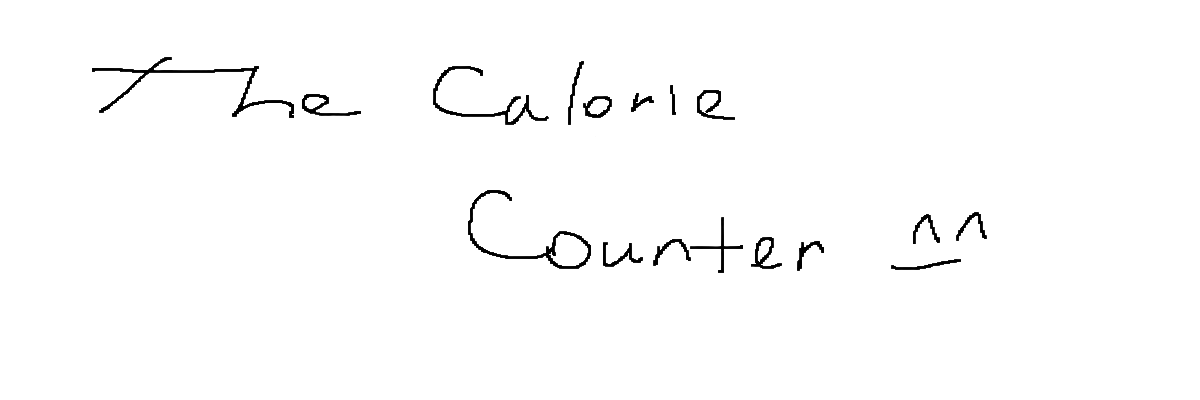 The Calorie
Counter ^^